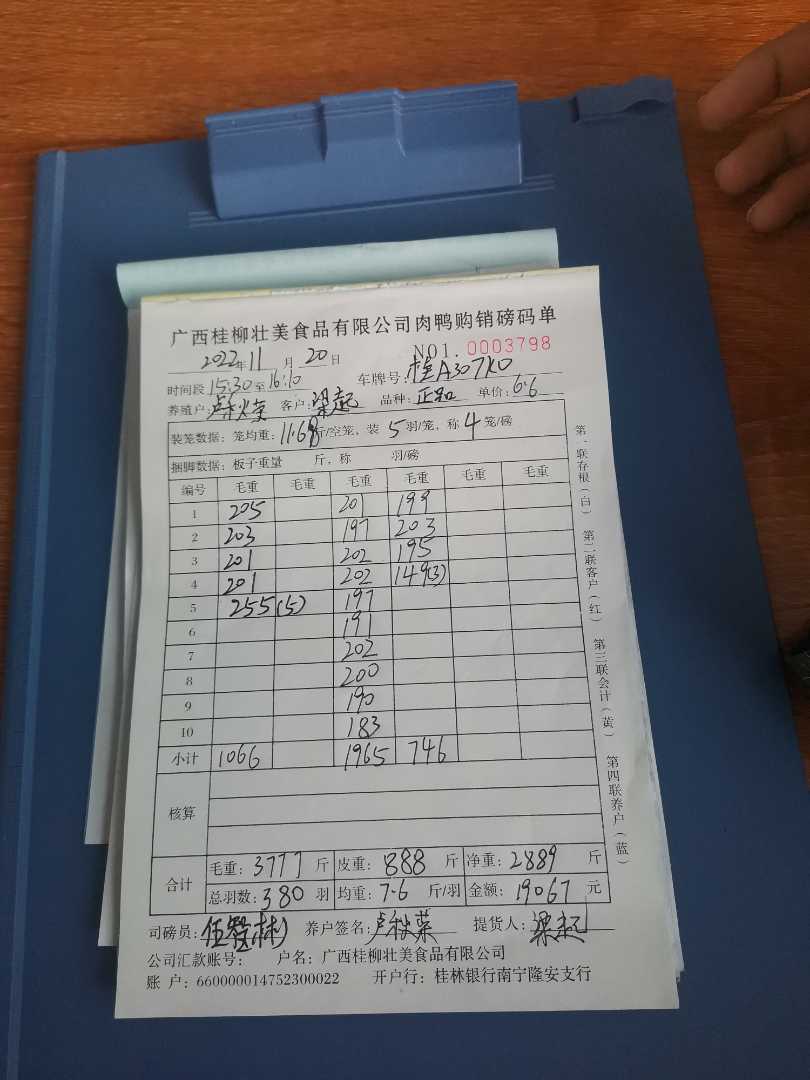 广西桂柳壮美食品有限公司肉鸭购销磅码单
2022年11月20日 NO1. 0003798
时间段15:30至16:10 车牌号:桂A307K0
养殖户:卢秋荣 客户:梁起 品种: 单价:6.6
装笼数据:笼均重:11.68斤/空笼,装5羽/笼,称4笼/磅
捆脚数据:板子重量 斤,称 羽/磅
编号 毛重 毛重 毛重 毛重 毛重 毛重
1 205 201 199
2 203 197 203
3 201 202 195
4 201 202 149(3)
5 255(5) 197
6 191
7 202
8 200
9 190
10 183
小计 1066 1965 746
核算
合计 毛重:3777斤 皮重:888斤 净重:2889斤
总羽数:380羽 均重:7.6斤/羽 金额:19067元
司磅员: 养户签名:卢秋荣 提货人:梁起
公司汇款账号: 户名:广西桂柳壮美食品有限公司
账 户:660000014752300022 开户行:桂林银行南宁隆安支行
第一联存根(白) 第二联客户(红) 第三联会计(黄) 第四联养户(蓝)